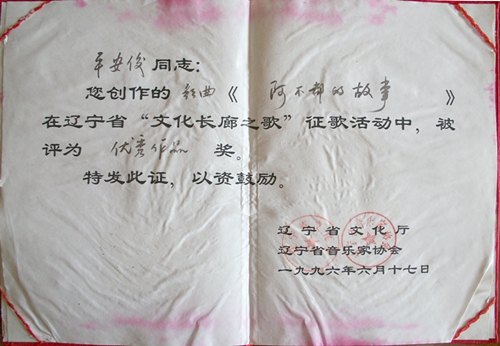 安俊同志：
您创作的歌曲《阿不都的故事》
在辽宁省“文化长廊之歌”征歌活动中，被
评为 优秀作品 奖。
特发此证，以资鼓励。
辽宁省文化厅
辽宁省音乐家协会
一九九六年六月十七日